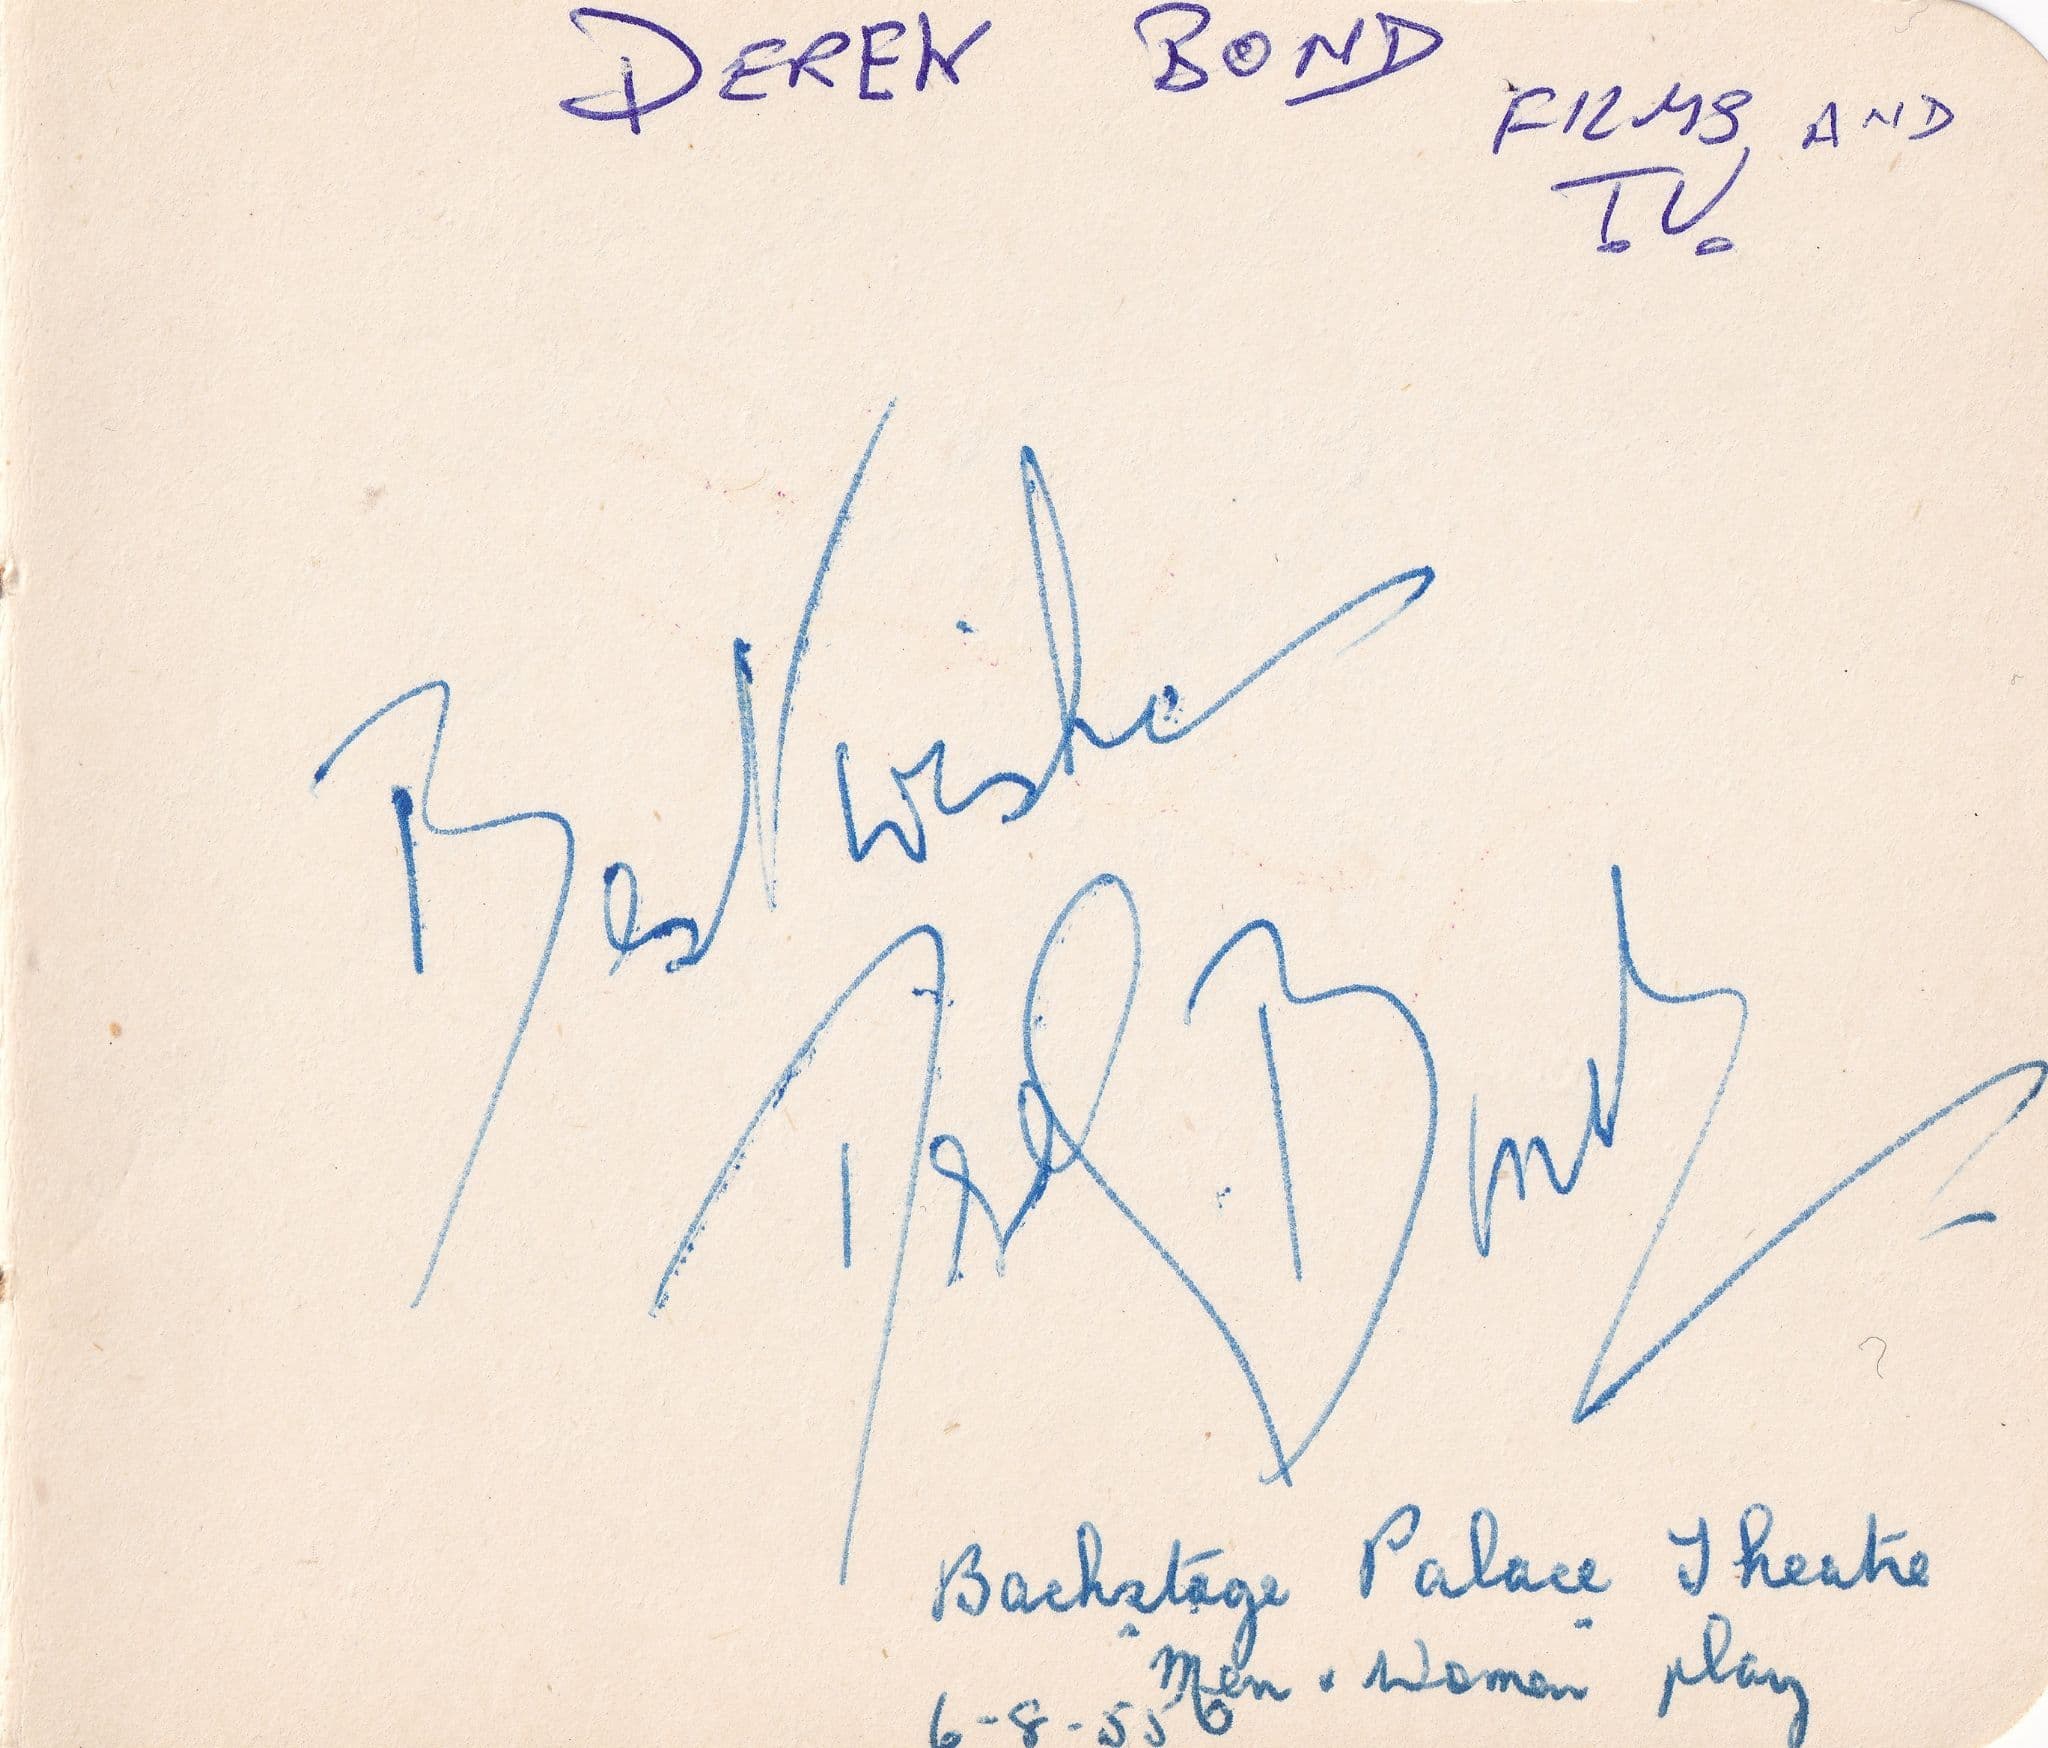 DEREK BOND
FILMS AND
T.V.
Best Wishes
Derek Bond
Backstage Palace Theatre
"Men & Woman" play
6-8-55